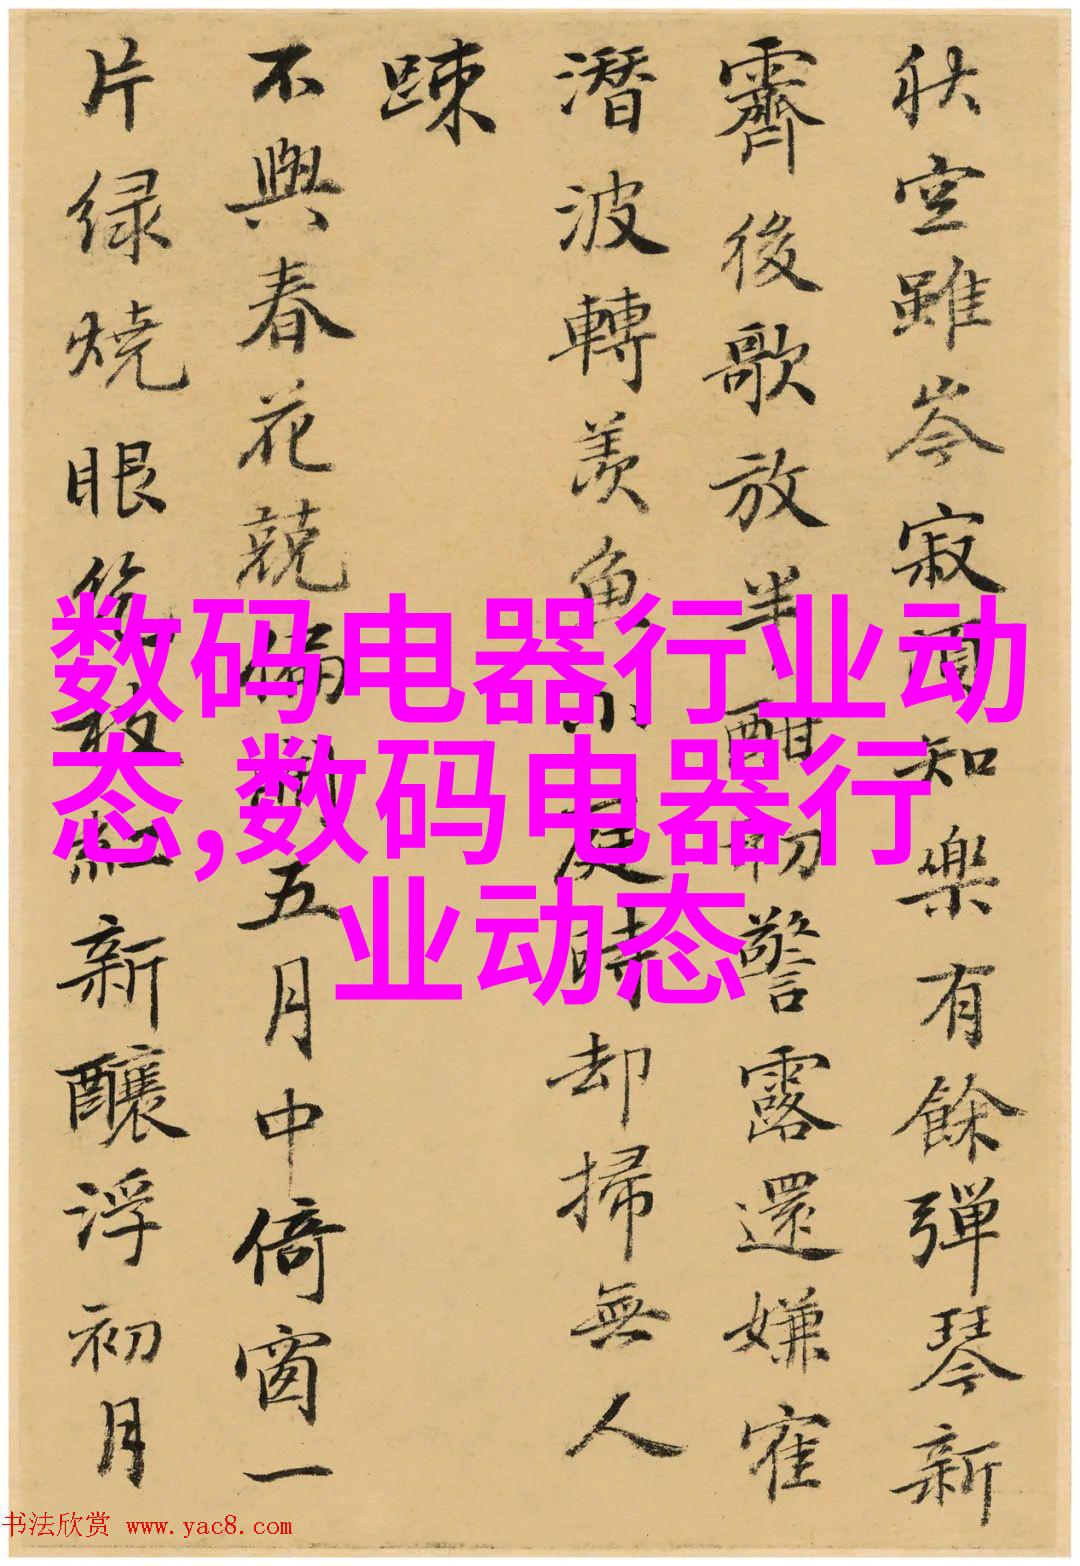 秋空雖岑寂頂知樂有餘彈琴新
霽後歌放半酣初警露還嫌寉
潛波轉羨魚小庭時却掃無人
踈
不與春花競偏 五月中倚窗一
片緑燒眼 紅新釀浮初月
数码电器行业动
态,数码电器行
业动态
书法欣赏 www.yac8.com